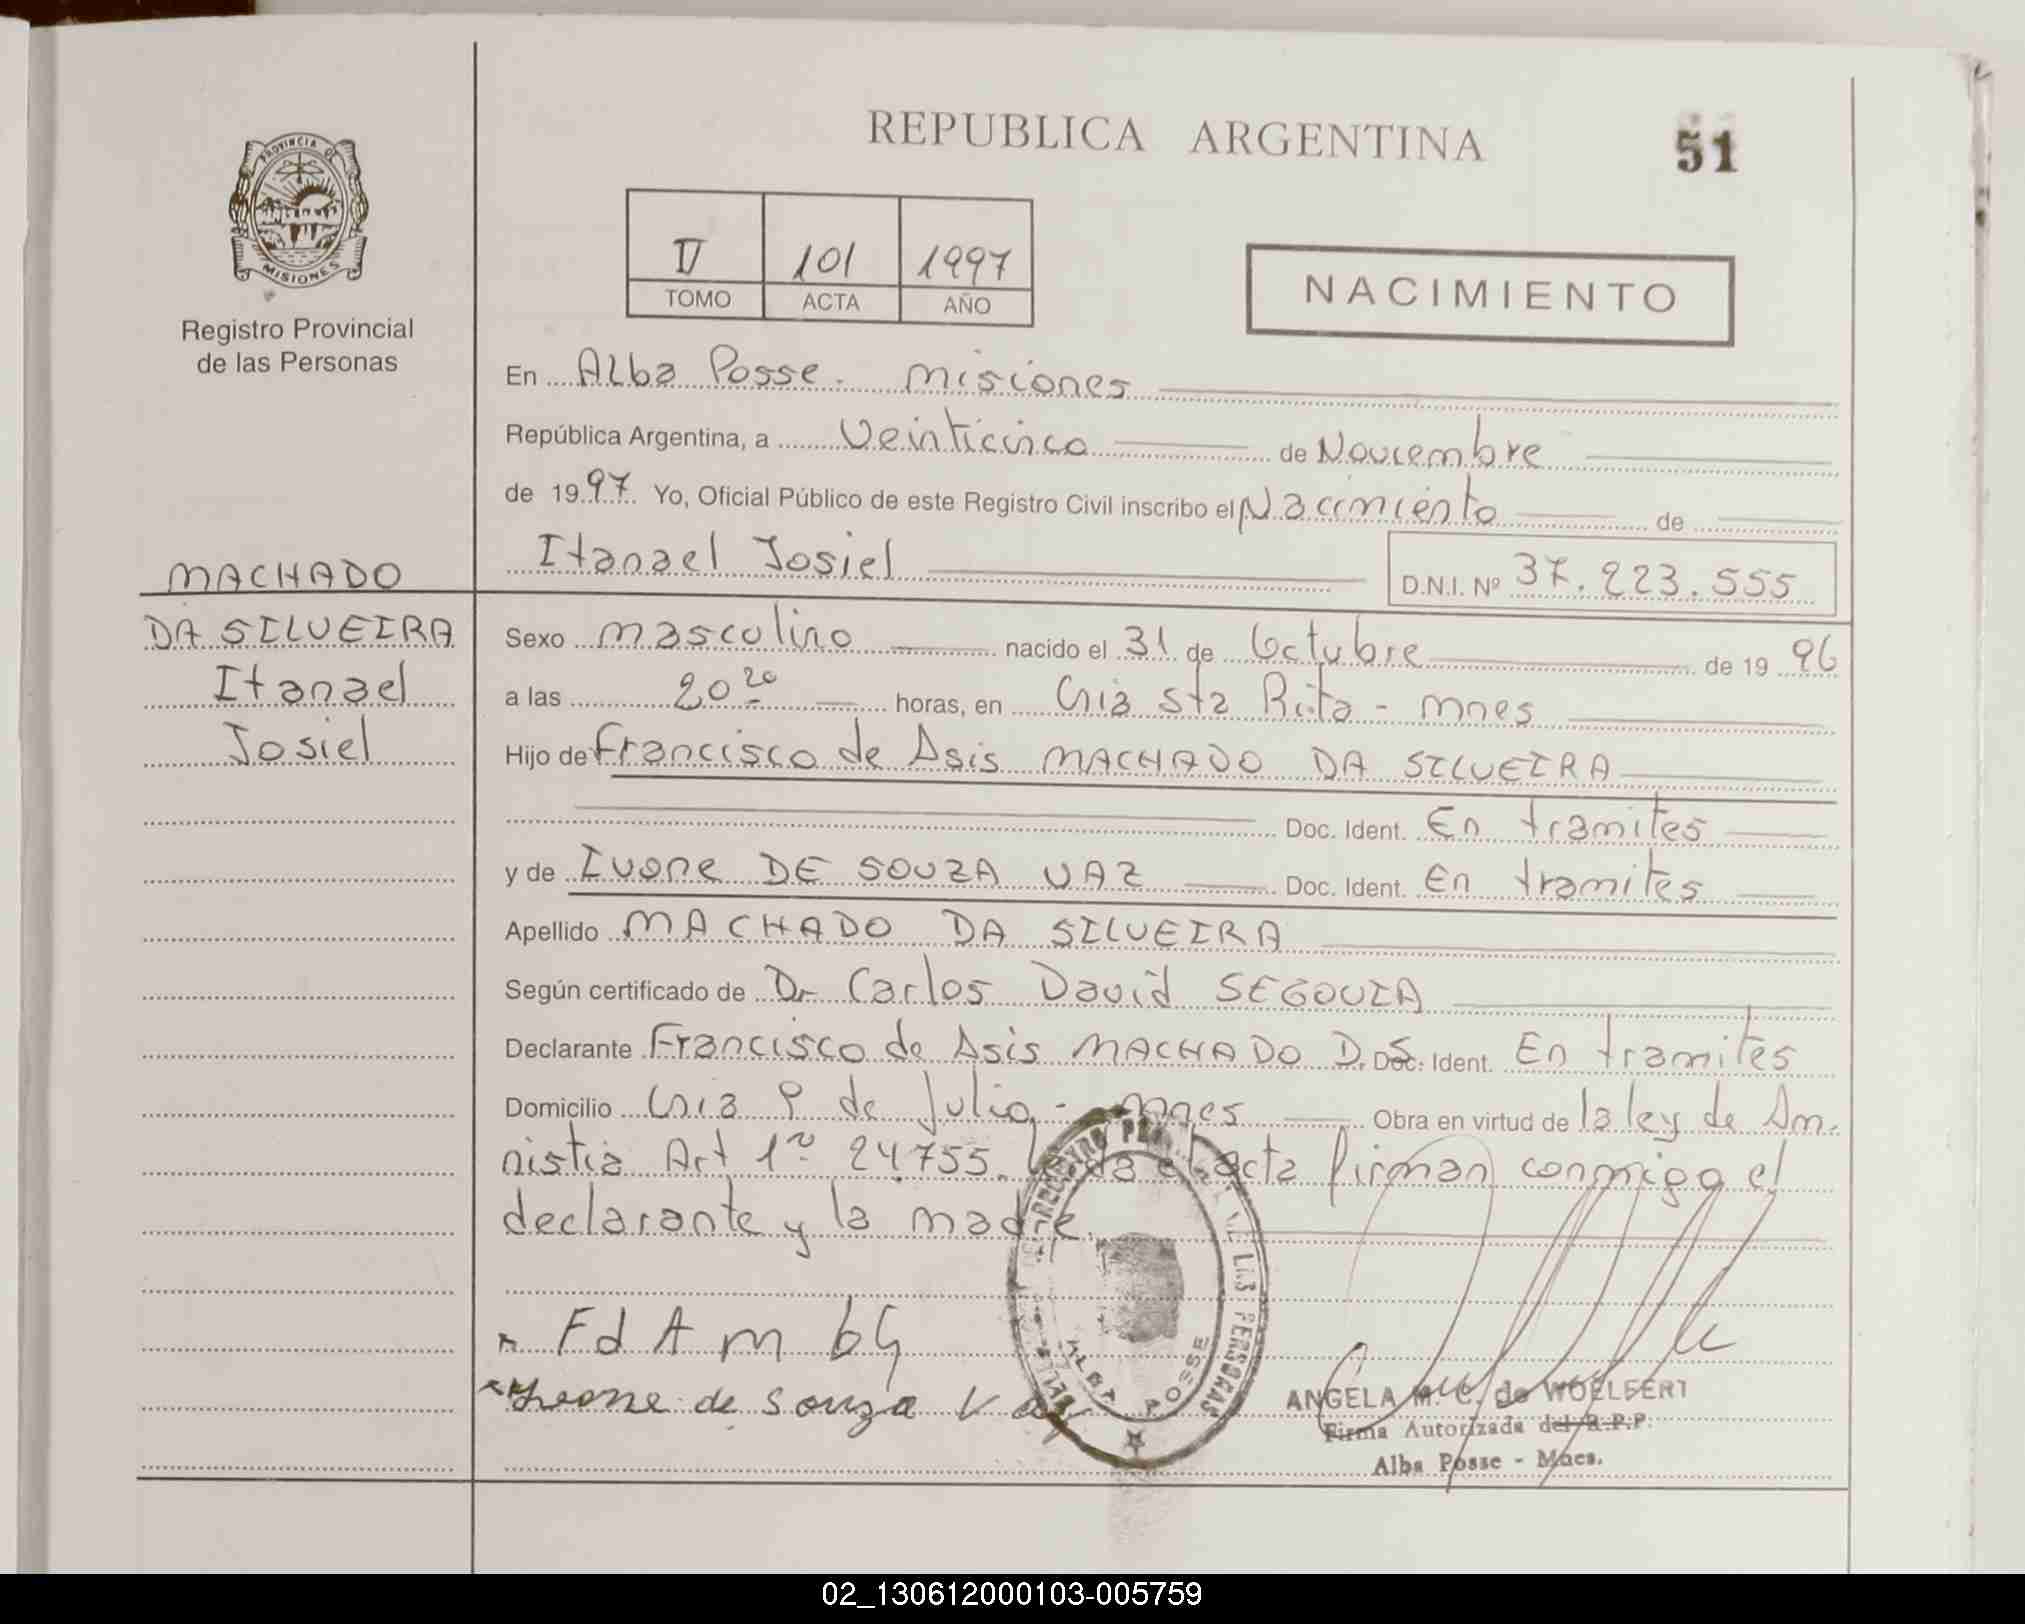 REPUBLICA ARGENTINA
51
PROVINCIA DE
MISIONES
Registro Provincial
de las Personas
II 101 1997
TOMO ACTA AÑO
NACIMIENTO
En Alba Posse. misiones
República Argentina, a veinticinco de Noviembre
de 1997 Yo, Oficial Público de este Registro Civil inscribo el Nacimiento de
Itanael Josiel D.N.I. Nº 37.223.555
MACHADO
DA SILVEIRA
Itanael
Josiel
Sexo masculino nacido el 31 de Octubre de 1996
a las 20 20 horas, en Cnia Sta Rita - mnes
Hijo de Francisco de Asis MACHADO DA SILVEIRA
Doc. Ident. En tramites
y de Ivone DE SOUZA VAZ Doc. Ident. En tramites
Apellido MACHADO DA SILVEIRA
Según certificado de Dr Carlos David SEGOVIA
Declarante Francisco de Asis MACHADO D. S. Doc. Ident. En tramites
Domicilio Cnia 9 de Julio - mnes Obra en virtud de la ley de Am-
nistia Art 1º 24755. Leida el acta firman conmigo el
declarante y la madre.
F d A m
de Souza Vaz
REGISTRO DE LAS PERSONAS
ALBA POSSE
ANGELA M. C. de WOELFERT
Firma Autorizada del R.P.P.
Alba Posse - Mnes.
02_130612000103-005759